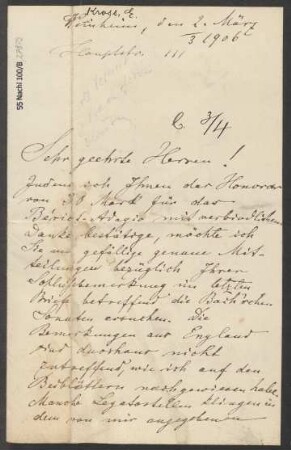 55 Nachl 100/B
Kross, E.
den 2. März
1906
Hauptstr. 111
3/4
Sehr geehrte Herren!
Indem ich Ihnen das Honorar
von 50 Mark für das
Beriot-Adagio mit verbindlichem
Danke bestätige, möchte ich
Sie um gefällige genaue Mit-
teilungen bezüglich Ihrer
Schlussbemerkung im letzten
Briefe betreffend die Bach'schen
Sonaten ersuchen. Die
Bemerkungen aus England
sind durchaus nicht
zutreffend, wie ich auf den
Beiblättern nachgewiesen habe.
Manche Legatostellen klingen in
dem von mir angegebenen